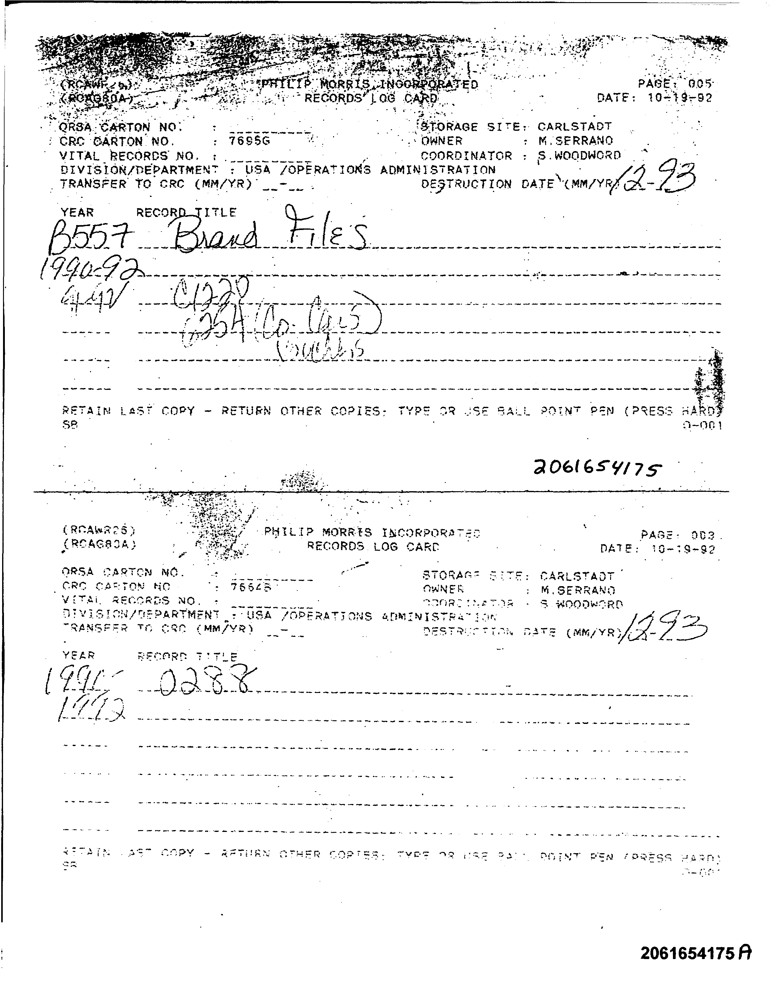 PHILIP MORRIS INCORPORATED PAGE: 005
(RCAG80A) RECORDS LOG CARD DATE: 10-19-92
ORSA CARTON NO. : STORAGE SITE: CARLSTADT
CRC CARTON NO. : 7695G OWNER : M.SERRANO
VITAL RECORDS NO. : COORDINATOR : S.WOODWORD
DIVISION/DEPARTMENT : USA /OPERATIONS ADMINISTRATION
TRANSFER TO CRC (MM/YR) __-__ DESTRUCTION DATE (MM/YR) 12-93
YEAR RECORD TITLE
B557 Brand Files
1990-92
C1220
(Co. Cars)
RETAIN LAST COPY - RETURN OTHER COPIES: TYPE OR USE BALL POINT PEN (PRESS HARD)
SB 0-001
2061654175
(RCAWR26) PHILIP MORRIS INCORPORATED PAGE: 003
(RCAG80A) RECORDS LOG CARD DATE: 10-19-92
ORSA CARTON NO. : STORAGE SITE: CARLSTADT
CRC CARTON NO : OWNER : M.SERRANO
VITAL RECORDS NO. : COORDINATOR : S WOODWORD
DIVISION/DEPARTMENT : USA /OPERATIONS ADMINISTRATION
TRANSFER TO CRC (MM/YR) __-__ DESTRUCTION DATE (MM/YR) 12-93
YEAR RECORD TITLE
0288
1992
RETAIN LAST COPY - RETURN OTHER COPIES: TYPE OR USE BALL POINT PEN (PRESS HARD)
SB 0-001
2061654175 A